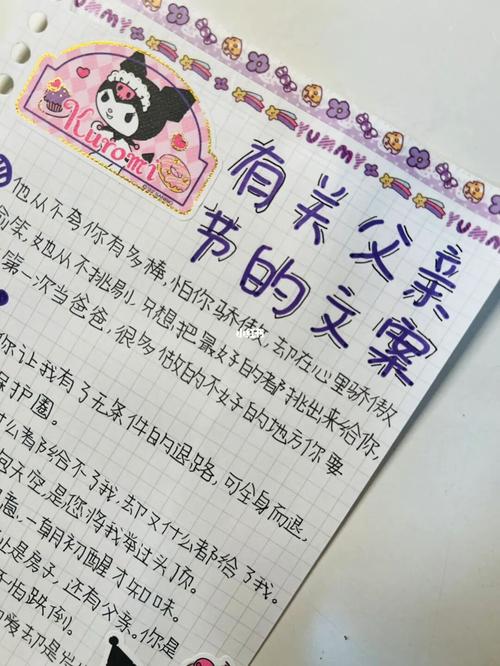 YUMMY
YUMMY
YUMMY
Kuromi
有关父亲
节的文案
他从不夸你有多棒,怕你骄傲,却在心里骄傲
笑,她从不挑剔,只想把最好的都挑出来给你,
第一次当爸爸,很多做的不好的地方你要
你让我有了无条件的退路,可全身而退,
保护圈。
什么都给不了我,却又什么都给了我。
抱天空,是您将我举过头顶。
意,一朝初醒才知味。
止是房子,还有父亲。你是
怕跌倒。
爱却是
小红书